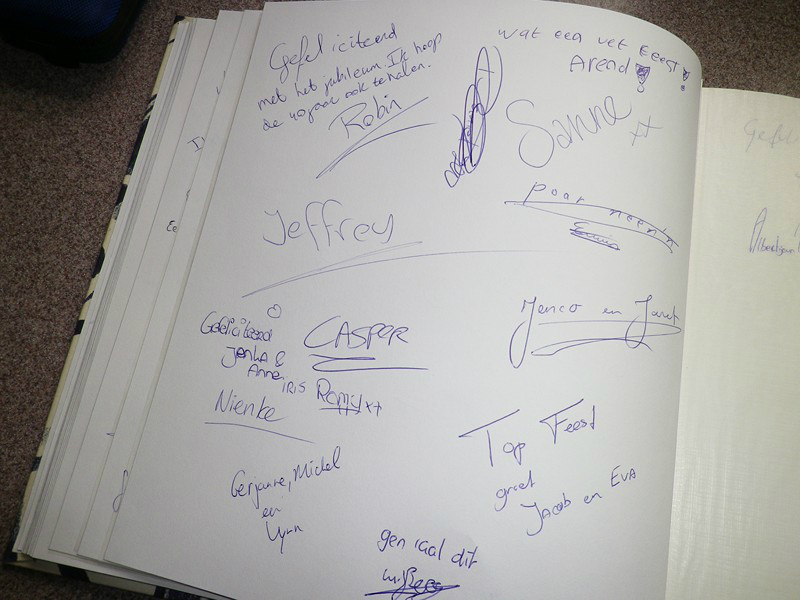 Gefeliciteerd
met het jubileum. Ik hoop
de 40 jaar ook te halen.
Robin
wat een vet feest!
Arend!
Sanne xx
Jeffrey
Gefeliciteerd
Jenka &
Anne iris
CASPER
Remy xx
Nienke
Gerjanne, Michel
en
Lynn
Menco en
Top Feest
groet
Jacob en EVA
geniaal dit
Gefel